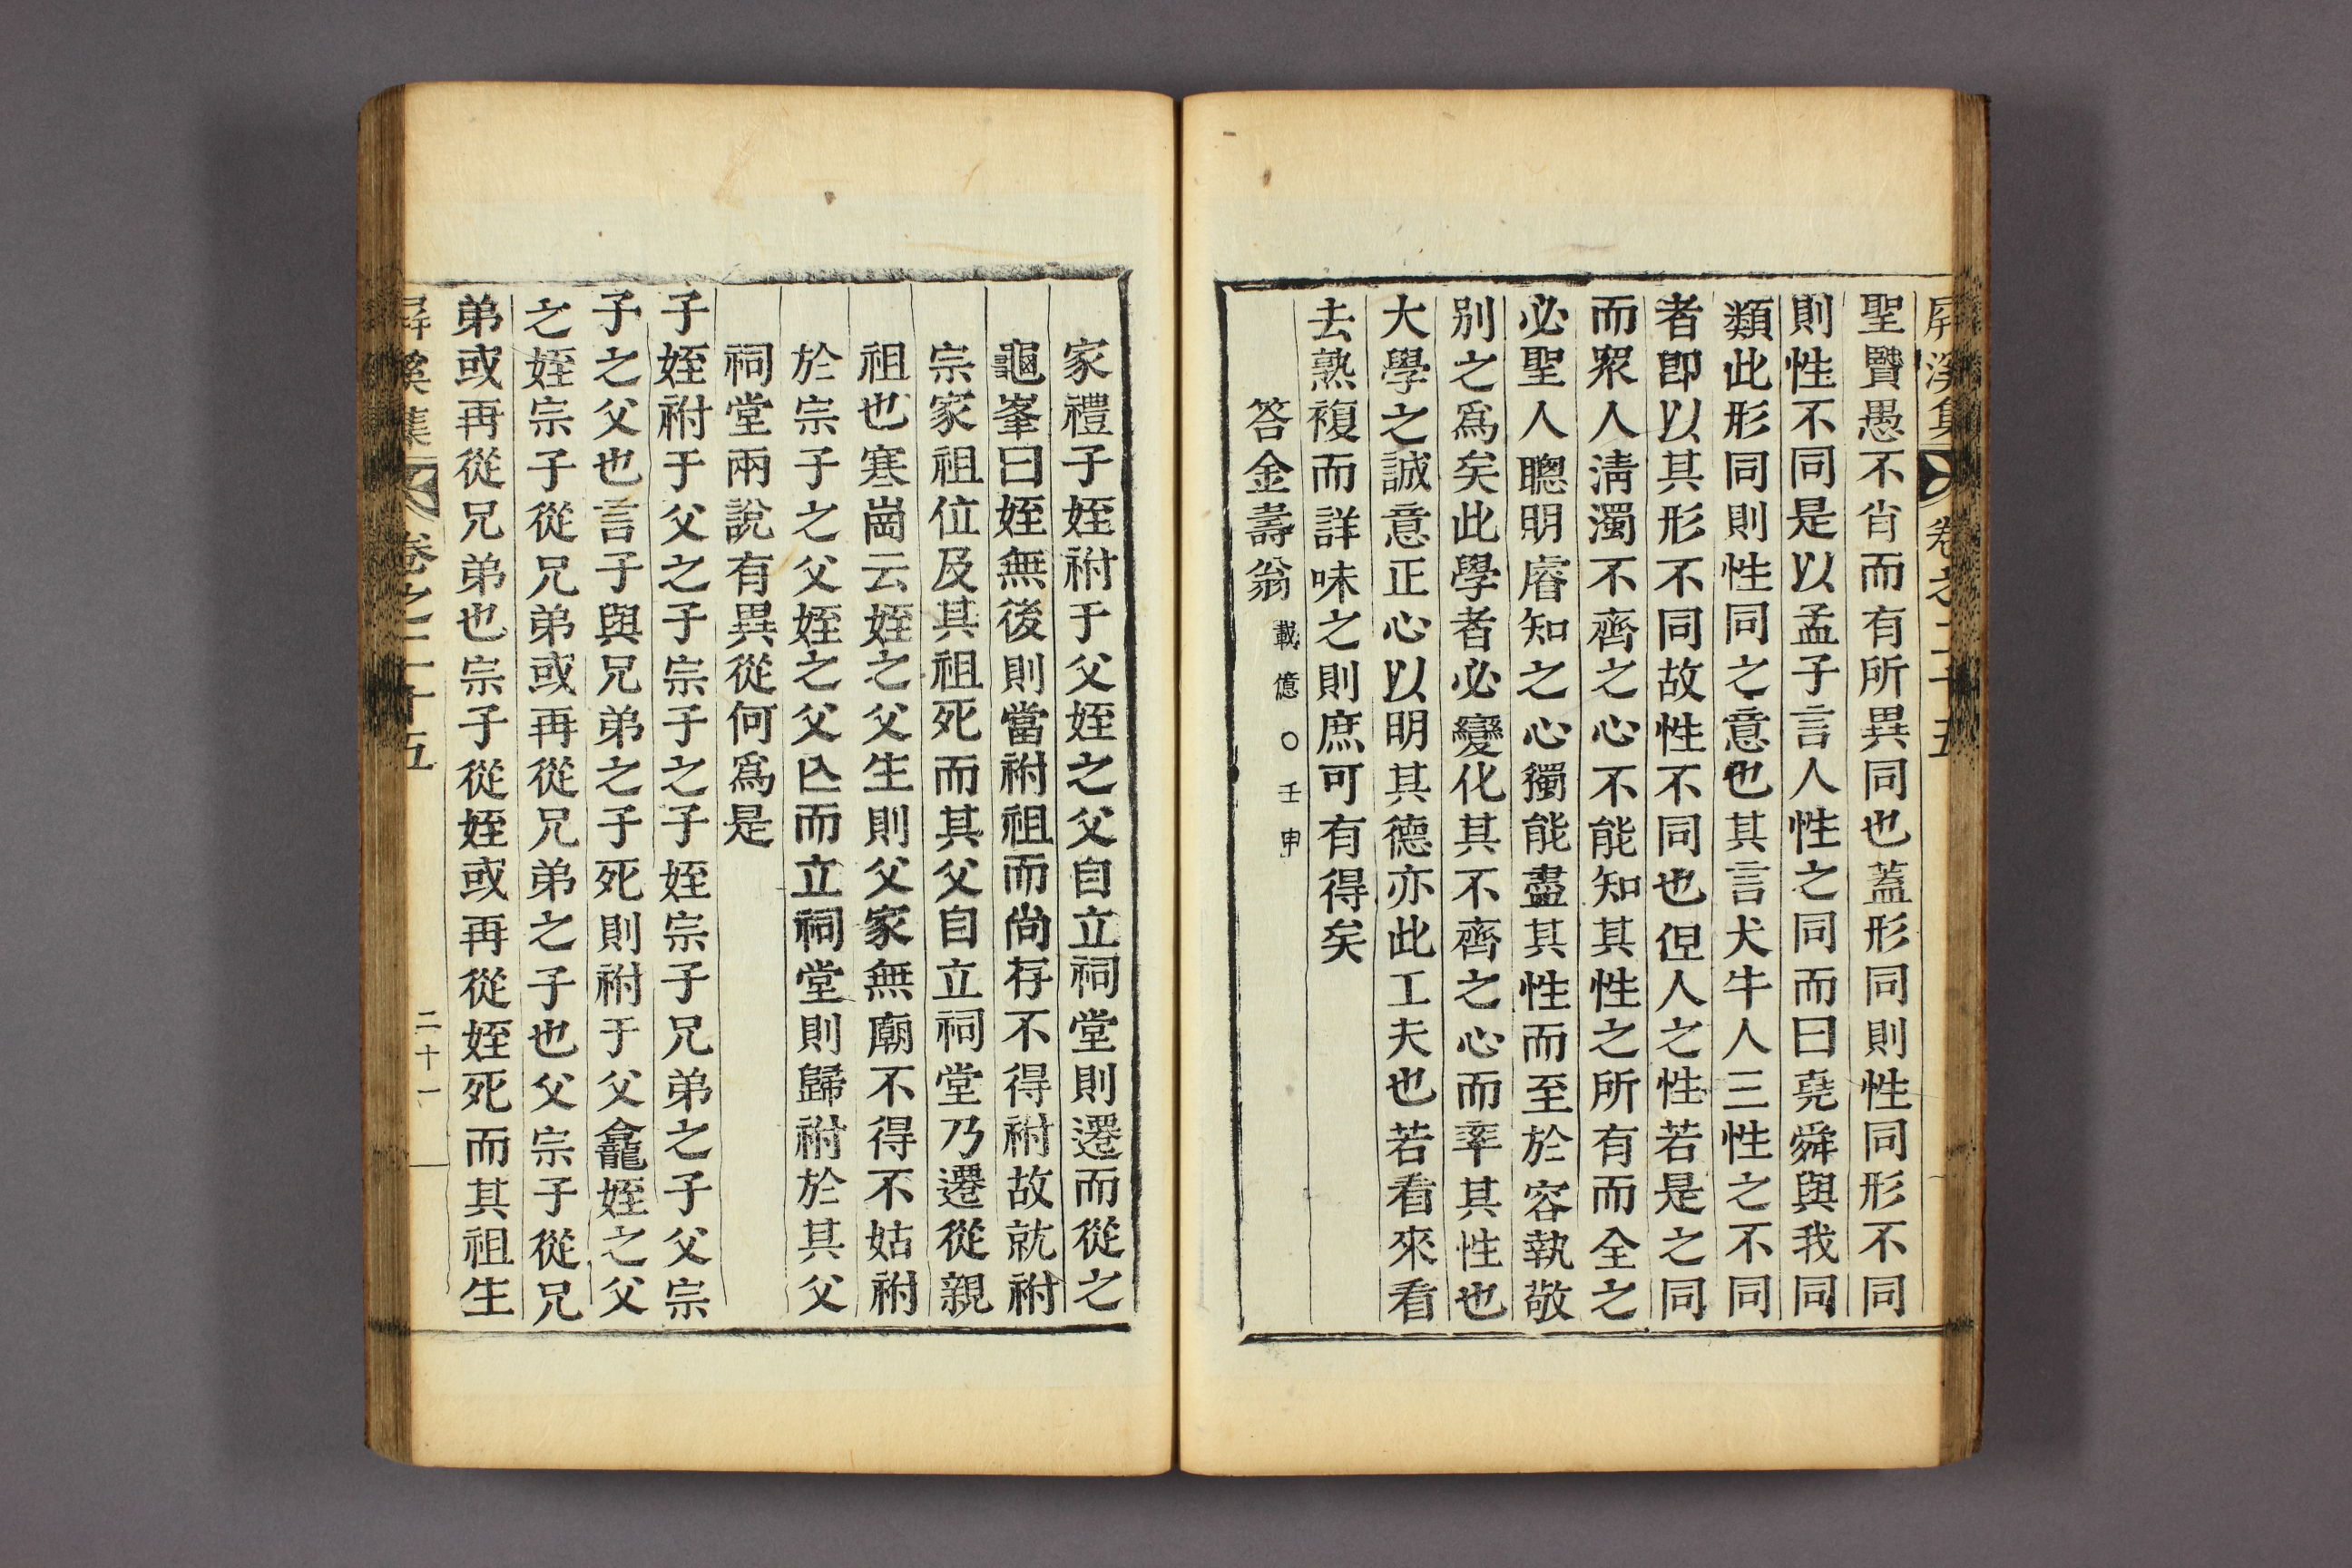 屛溪集 卷之二十五
聖賢愚不肖而有所異同也蓋形同則性同形不同
則性不同是以孟子言人性之同而曰堯舜與我同
類此形同則性同之意也其言犬牛人三性之不同
者卽以其形不同故性不同也但人之性若是之同
而衆人淸濁不齊之心不能知其性之所有而全之
必聖人聰明睿知之心獨能盡其性而至於容執敬
別之爲矣此學者必變化其不齊之心而率其性也
大學之誠意正心以明其德亦此工夫也若看來看
去熟複而詳味之則庶可有得矣
答金壽翁 載億○壬申
家禮子姪祔于父姪之父自立祠堂則遷而從之
龜峯曰姪無後則當祔祖而尙存不得祔故就祔
宗家祖位及其祖死而其父自立祠堂乃遷從親
祖也寒岡云姪之父生則父家無廟不得不姑祔
於宗子之父姪之父亡而立祠堂則歸祔於其父
祠堂兩說有異從何爲是
子姪祔于父之子宗子之子姪宗子兄弟之子父宗
子之父也言子與兄弟之子死則祔于父龕姪之父
之姪宗子從兄弟或再從兄弟之子也父宗子從兄
弟或再從兄弟也宗子從姪或再從姪死而其祖生
屛溪集 卷之二十五 二十一